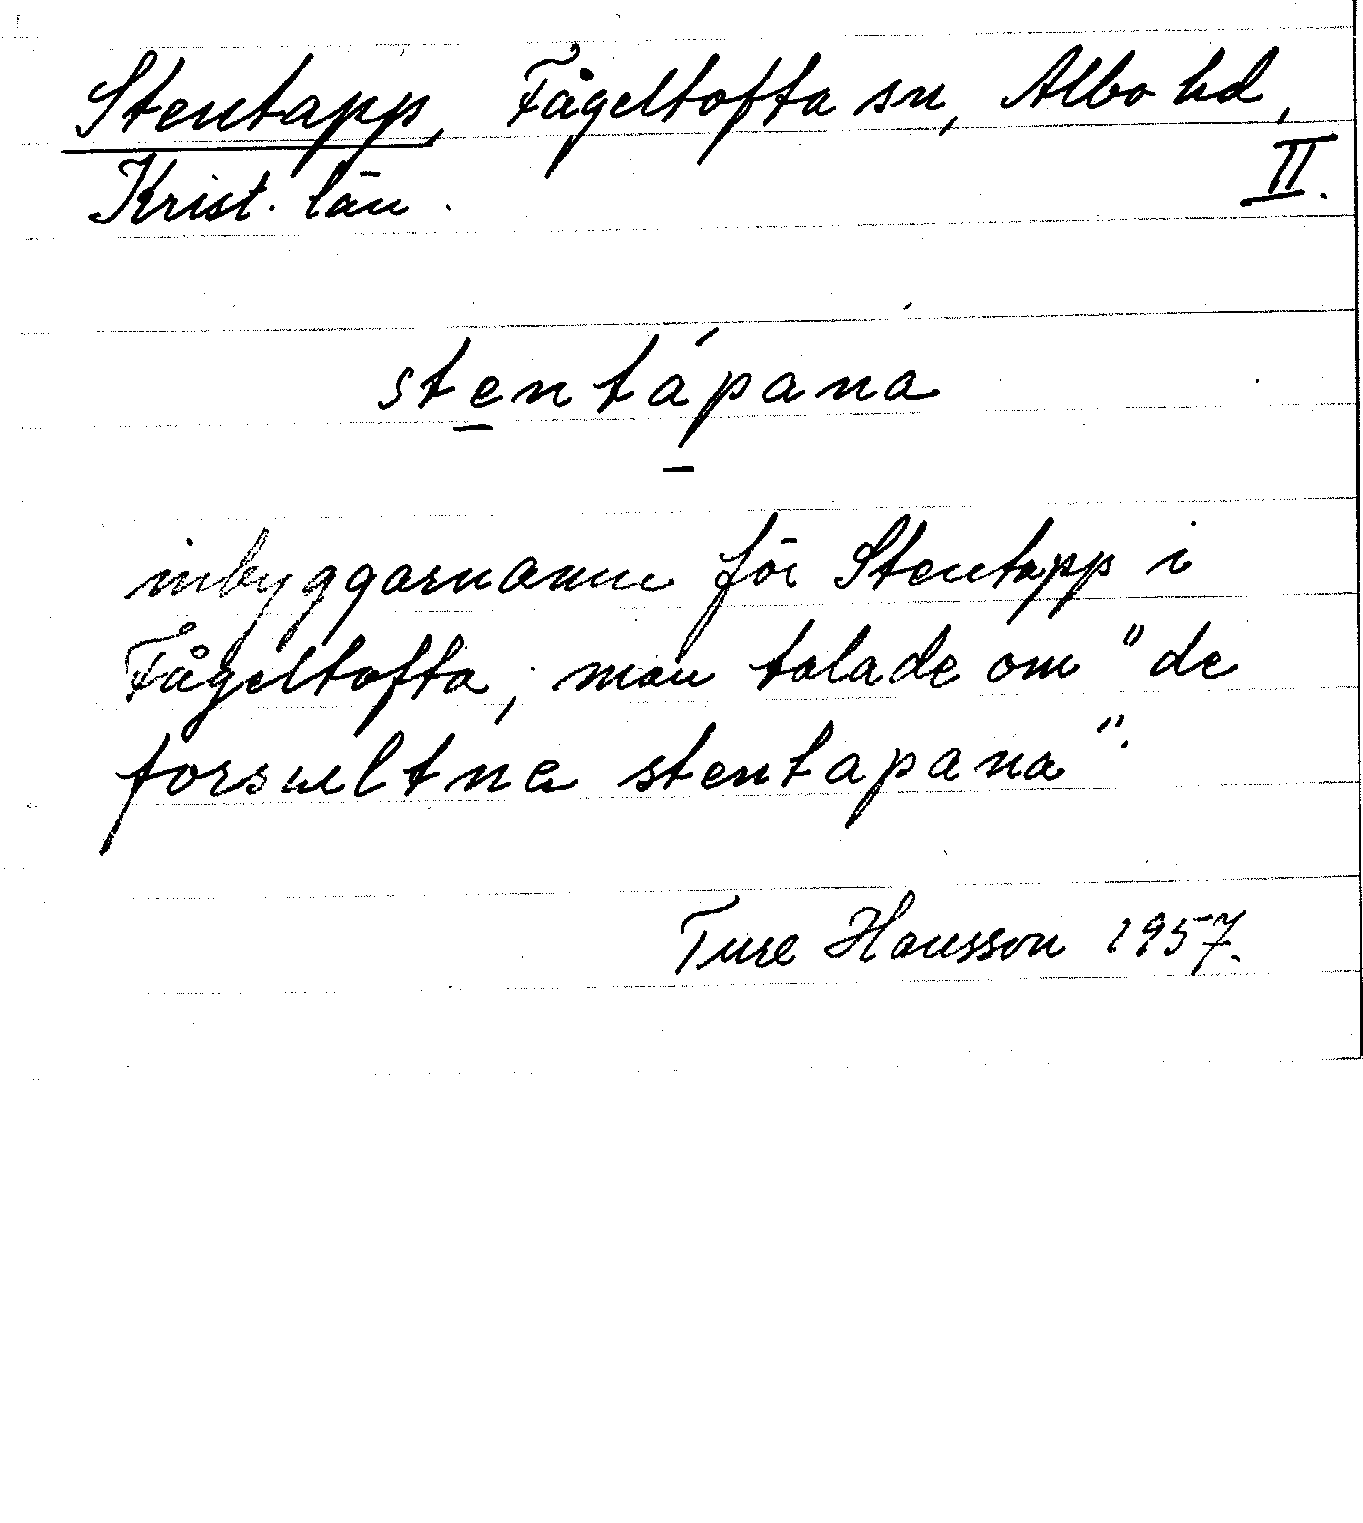 Stentapp, Fågeltofta sn, Albo hd,
Krist. län. II.
stentápana
inbyggarnamn för Stentapp i
Fågeltofta; man talade om "de
forsultna stentapana".
Ture Hansson 1957.